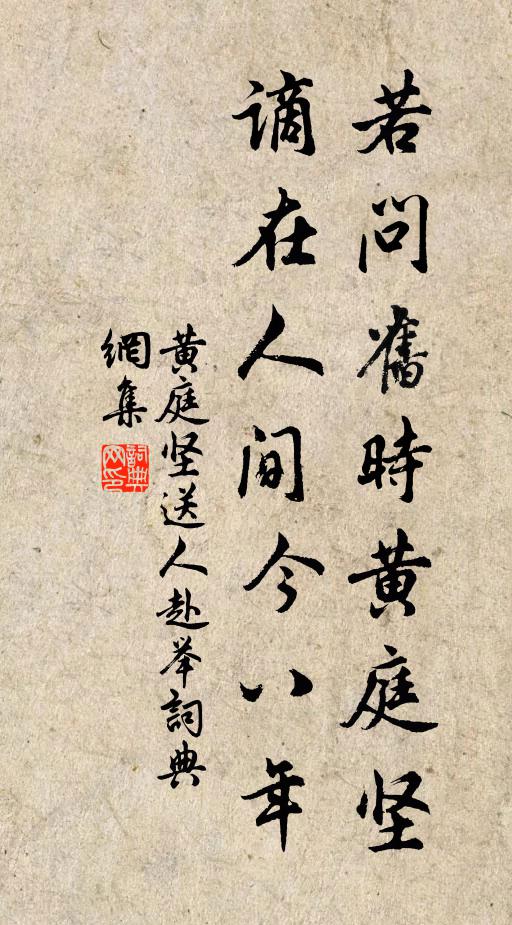 若问舊時黄庭坚
谪在人间今八年
黄庭坚送人赴举詞典
網集
詞典
网印